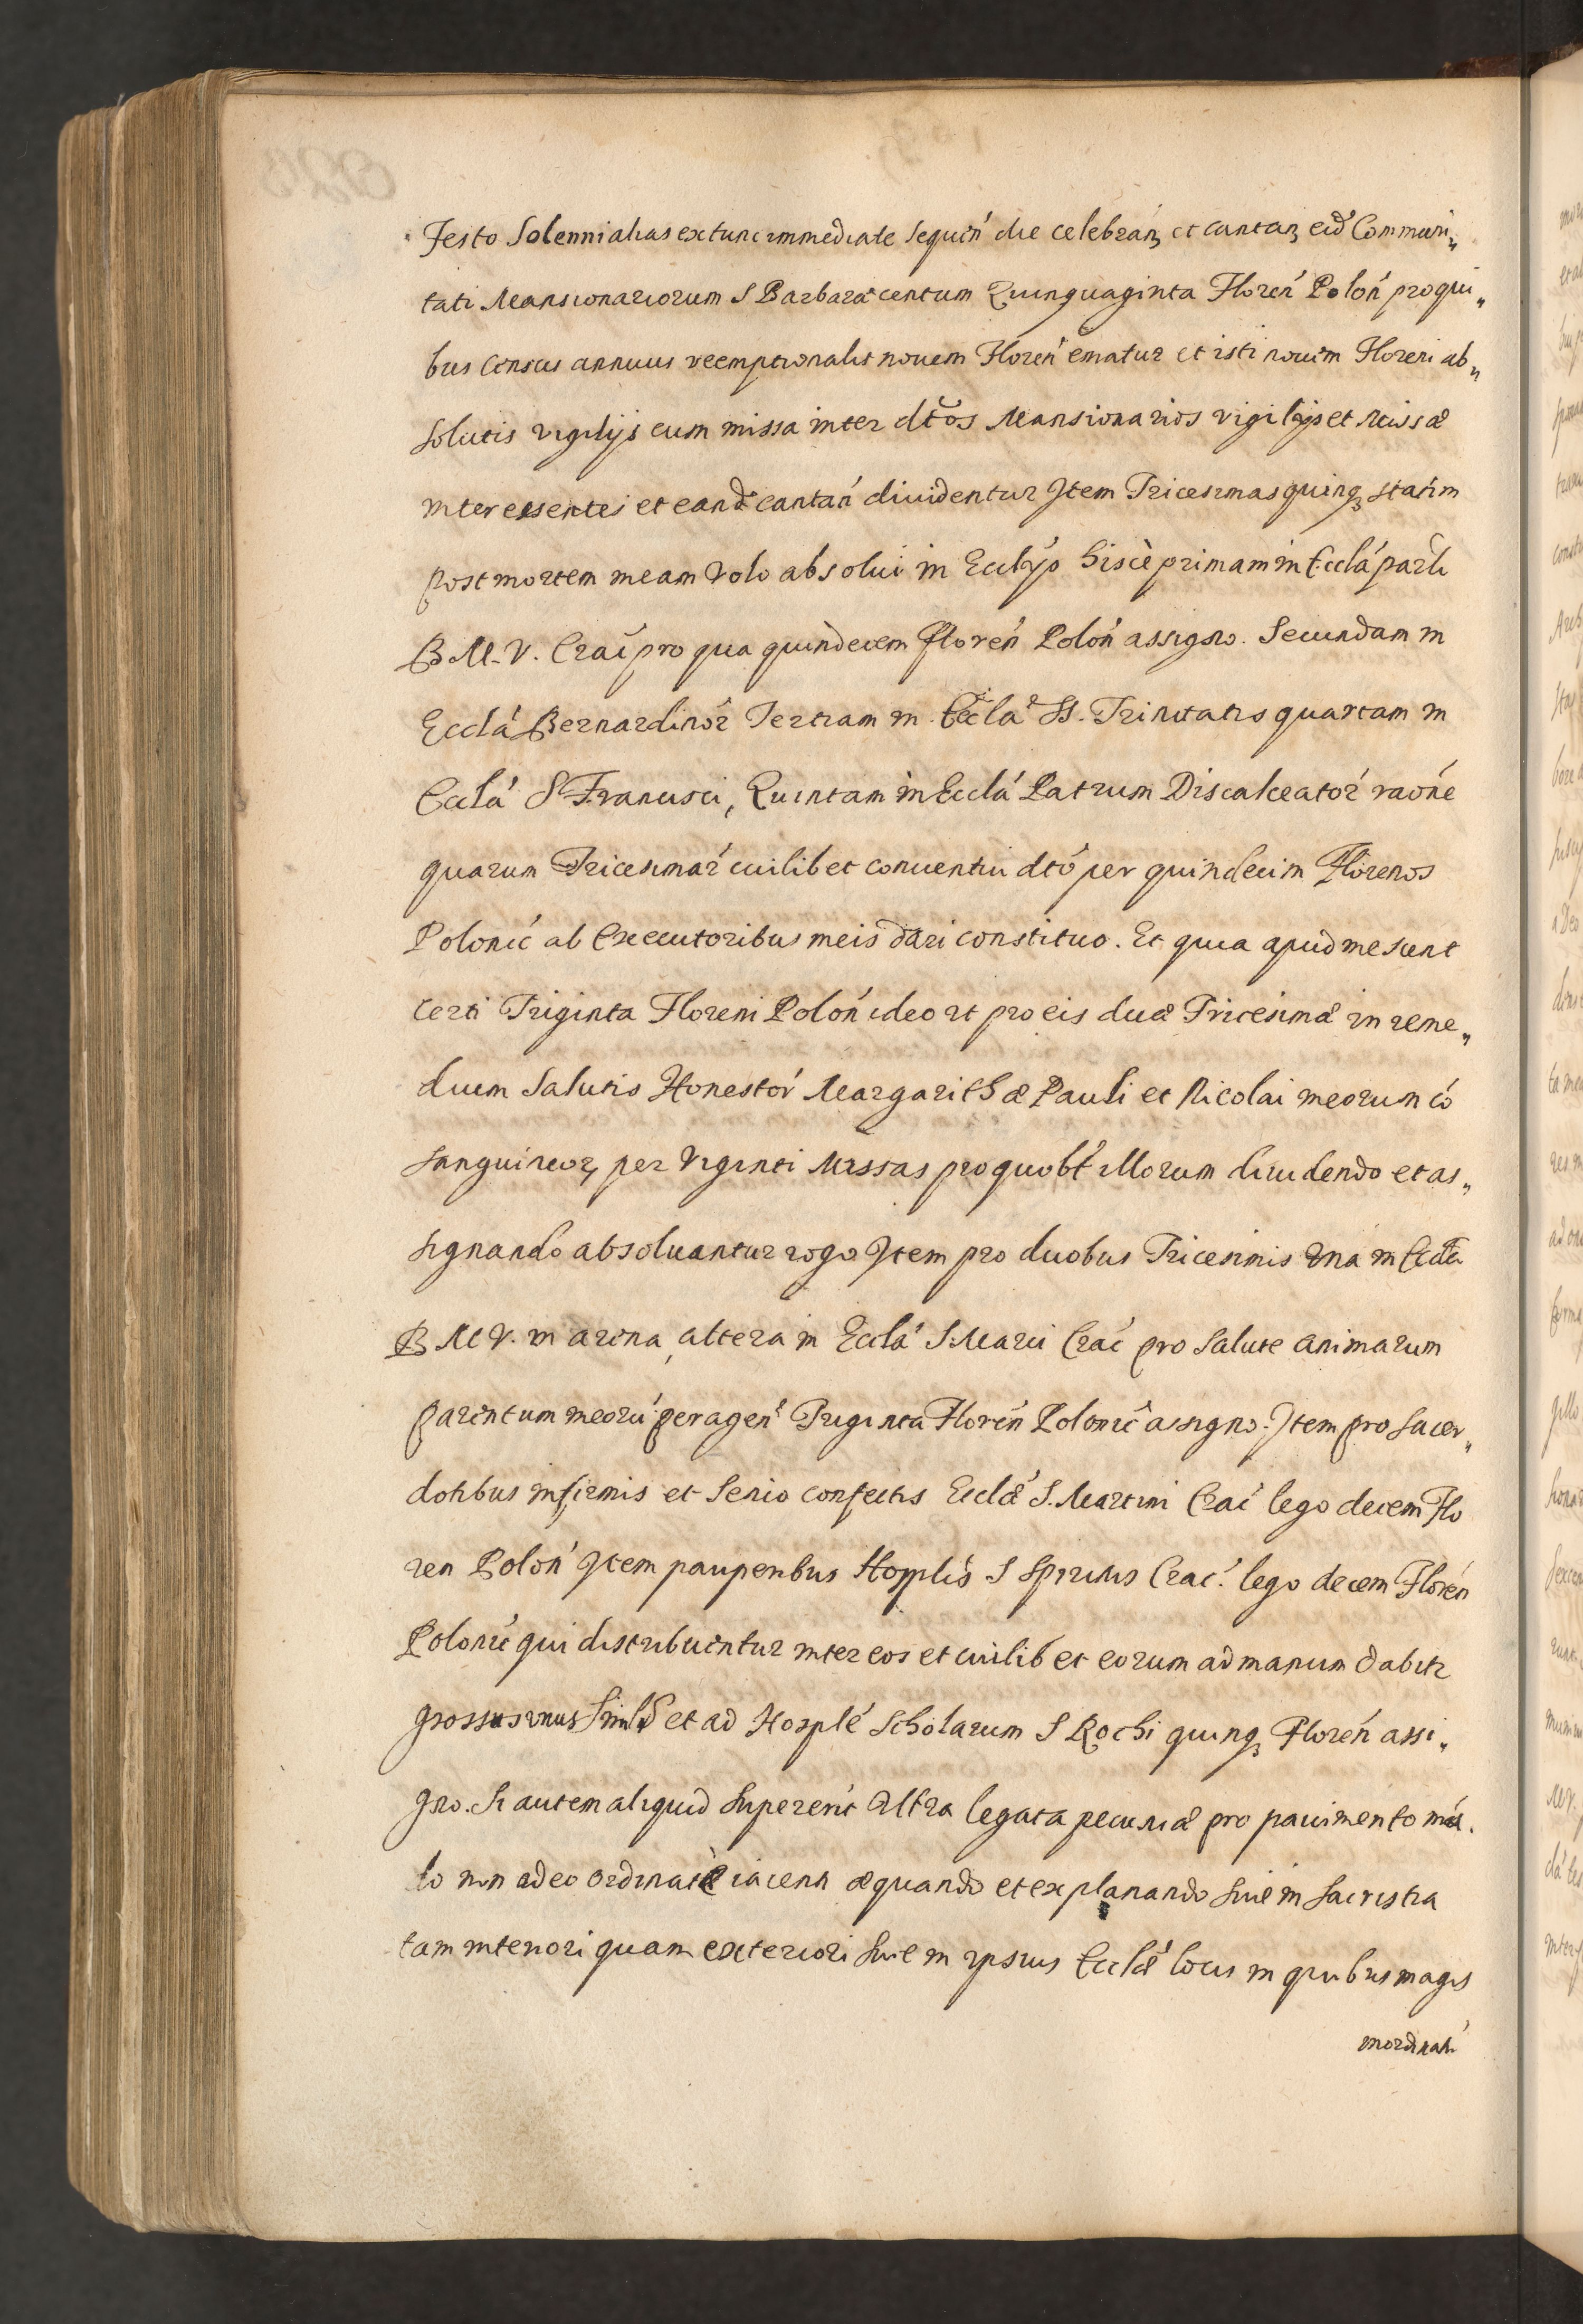 Festo Solenni alias extunc immediate sequeń die celebrań et cantań eid́ Communi„
tati Mansionariorum S Barbaræ centum Quinquaginta Floreń Polón pro qui„
bus Census annuus reemptionalis nouem Floreń ematur et isti nouem Floreni ab„
solutis vigilijs cum missa inter dc̃tos Mansionarios vigilijs et Missæ
interessentes et eand́ cantań diuidentur Item Tricesimas quinq₃ statim
post mortem meam Volo absolui in Ecclijs hisce primam in Ecclá parli
B. M. V. Crać pro qua quindecem Floreń Polón assigno. Secundam in
Ecclá Bernardinoŕ Tertiam in Ecclá SS. Trinitatis quartam in
Ecclá S Francisci, Quintam in Ecclá Patrum Discalceatoŕ raóne
quarum Tricesimaŕ cuilibet conuentui dtó per quindecim Florenos
Polonić ab Executoribus meis dari constituo. Et quia apud me sunt
certi Triginta Floreni Polón ideo ut pro eis duæ Tricesimæ in reme„
dium Salutis Honestoŕ Margarithæ Pauli et Nicolai meorum có
sanguineor₃ per Viginti Missas pro quobt́ illorum diuidendo et as„
signando absoluantur rogo Item pro duobus Tricesimis una in Eccla
B M V. in arena, altera in Ecclá S. Marci Crać pro Salute animarum
parentum meorú perageń Triginta Floreń Polonić assigno. Item pro Sacer„
dotibus infirmis et Senio confectis Ecclǽ S. Martini Crać lego decem Flo
ren Polón Item pauperibus Hosplis S Spiritus Crać. lego decem Floreń
Polonić qui distribuentur inter eos et cuilibet eorum ad manum dabitr
grossus unus Simlr et ad Hosplé Scholarum S Rochi quinq₃ Floreń assi„
gno. Si autem aliquid Supererit Ultra legata pecuniæ pro pauimento mul.
to non adeo ordinate iacenti æquando et explanando siue in Sacristia
tam interiori quam exteriori siue in ipsius Ecclǽ locis in quibus magis
inordinati